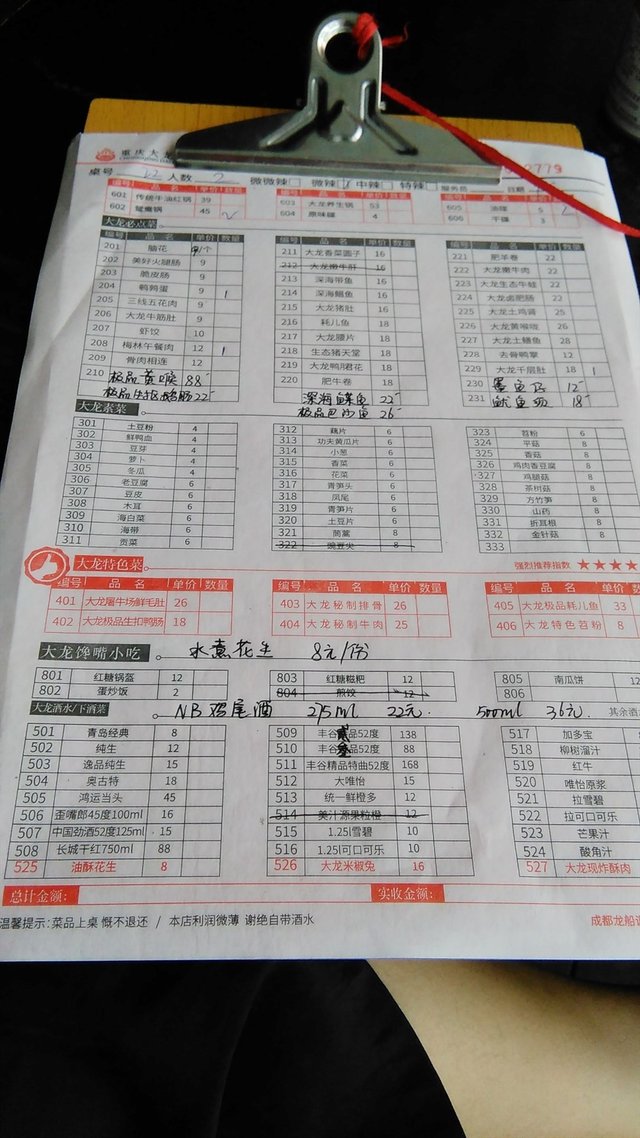 重庆大
2779
桌号 人数 2 微微辣 微辣 中辣 特辣 服务员 日期
编号 品名 单价 数量
601 传统牛油红锅 39 603 大龙养生锅 53 605 油碟 5
602 鸳鸯锅 45 604 原味碟 4 606 干碟 3
大龙必点菜
编号 品名 单价 数量 编号 品名 单价 数量 编号 品名 单价 数量
201 脑花 /个 211 大龙香菜圆子 16 221 肥羊卷 22
202 美好火腿肠 9 212 大龙嫩牛肝 16 222 大龙嫩牛肉 22
203 脆皮肠 9 213 深海带鱼 16 223 大龙生态牛蛙 22
204 鹌鹑蛋 9 1 214 深海鲳鱼 16 224 大龙卤肥肠 22
205 三线五花肉 9 215 大龙猪肚 16 225 大龙土鸡肾 25
206 大龙牛筋肚 9 216 耗儿鱼 18 226 大龙黄喉咙 26
207 虾饺 10 217 大龙腰片 18 227 大龙土鳝鱼 28
208 梅林午餐肉 12 1 218 生态猪天堂 18 228 去骨鸭掌 12
209 骨肉相连 12 219 大龙鸭君花 18 229 大龙千层肚 18 1
210 极品黄喉 88 220 肥牛卷 18 230 墨鱼仔 12
极品生抠鹅肠 22 深海鲽鱼 22 231 鱿鱼须 18
极品巴沙鱼 26
大龙素菜
301 土豆粉 4 312 藕片 6 323 苕粉 6
302 鲜鸭血 4 313 功夫黄瓜片 6 324 平菇 8
303 豆芽 4 314 小葱 6 325 香菇 8
304 萝卜 4 315 香菜 6 326 鸡肉香豆腐 8
305 冬瓜 4 316 花菜 6 327 鸡腿菇 8
306 老豆腐 6 317 青笋头 6 328 茶树菇 8
307 豆皮 6 318 凤尾 6 329 方竹笋 8
308 木耳 6 319 青笋片 6 330 山药 8
309 海白菜 6 320 土豆片 6 331 折耳根 8
310 海带 6 321 茼蒿 6 332 金针菇 8
311 贡菜 6 322 豌豆尖 8 333
大龙特色菜 强烈推荐指数 ★★★★
编号 品名 单价 数量 编号 品名 单价 数量 编号 品名 单价 数量
401 大龙屠牛场鲜毛肚 26 403 大龙秘制排骨 26 405 大龙极品耗儿鱼 33
402 大龙极品生扣鸭肠 18 404 大龙秘制牛肉 25 406 大龙特色苕粉 8
大龙馋嘴小吃 水煮花生 8元/份
801 红糖锅盔 12 803 红糖糍粑 12 805 南瓜饼 12
802 蛋炒饭 2 804 煎饺 12 806
大龙酒水/下酒菜 NB鸡尾酒 275ml 22元. 500ml 36元. 其余酒
501 青岛经典 8 509 丰谷品52度 138 517 加多宝
502 纯生 12 510 丰谷品52度 88 518 柳树溜汁
503 逸品纯生 15 511 丰谷精品特曲52度 168 519 红牛
504 奥古特 18 512 大唯怡 15 520 唯怡原浆
505 鸿运当头 45 513 统一鲜橙多 12 521 拉雪碧
506 歪嘴郎45度100ml 16 514 美汁源果粒橙 12 522 拉可口可乐
507 中国劲酒52度125ml 15 515 1.25l雪碧 10 523 芒果汁
508 长城干红750ml 88 516 1.25l可口可乐 10 524 酸角汁
525 油酥花生 8 526 大龙米椒兔 16 527 大龙现炸酥肉
总计金额: 实收金额:
温馨提示:菜品上桌 慨不退还 / 本店利润微薄 谢绝自带酒水 成都龙船